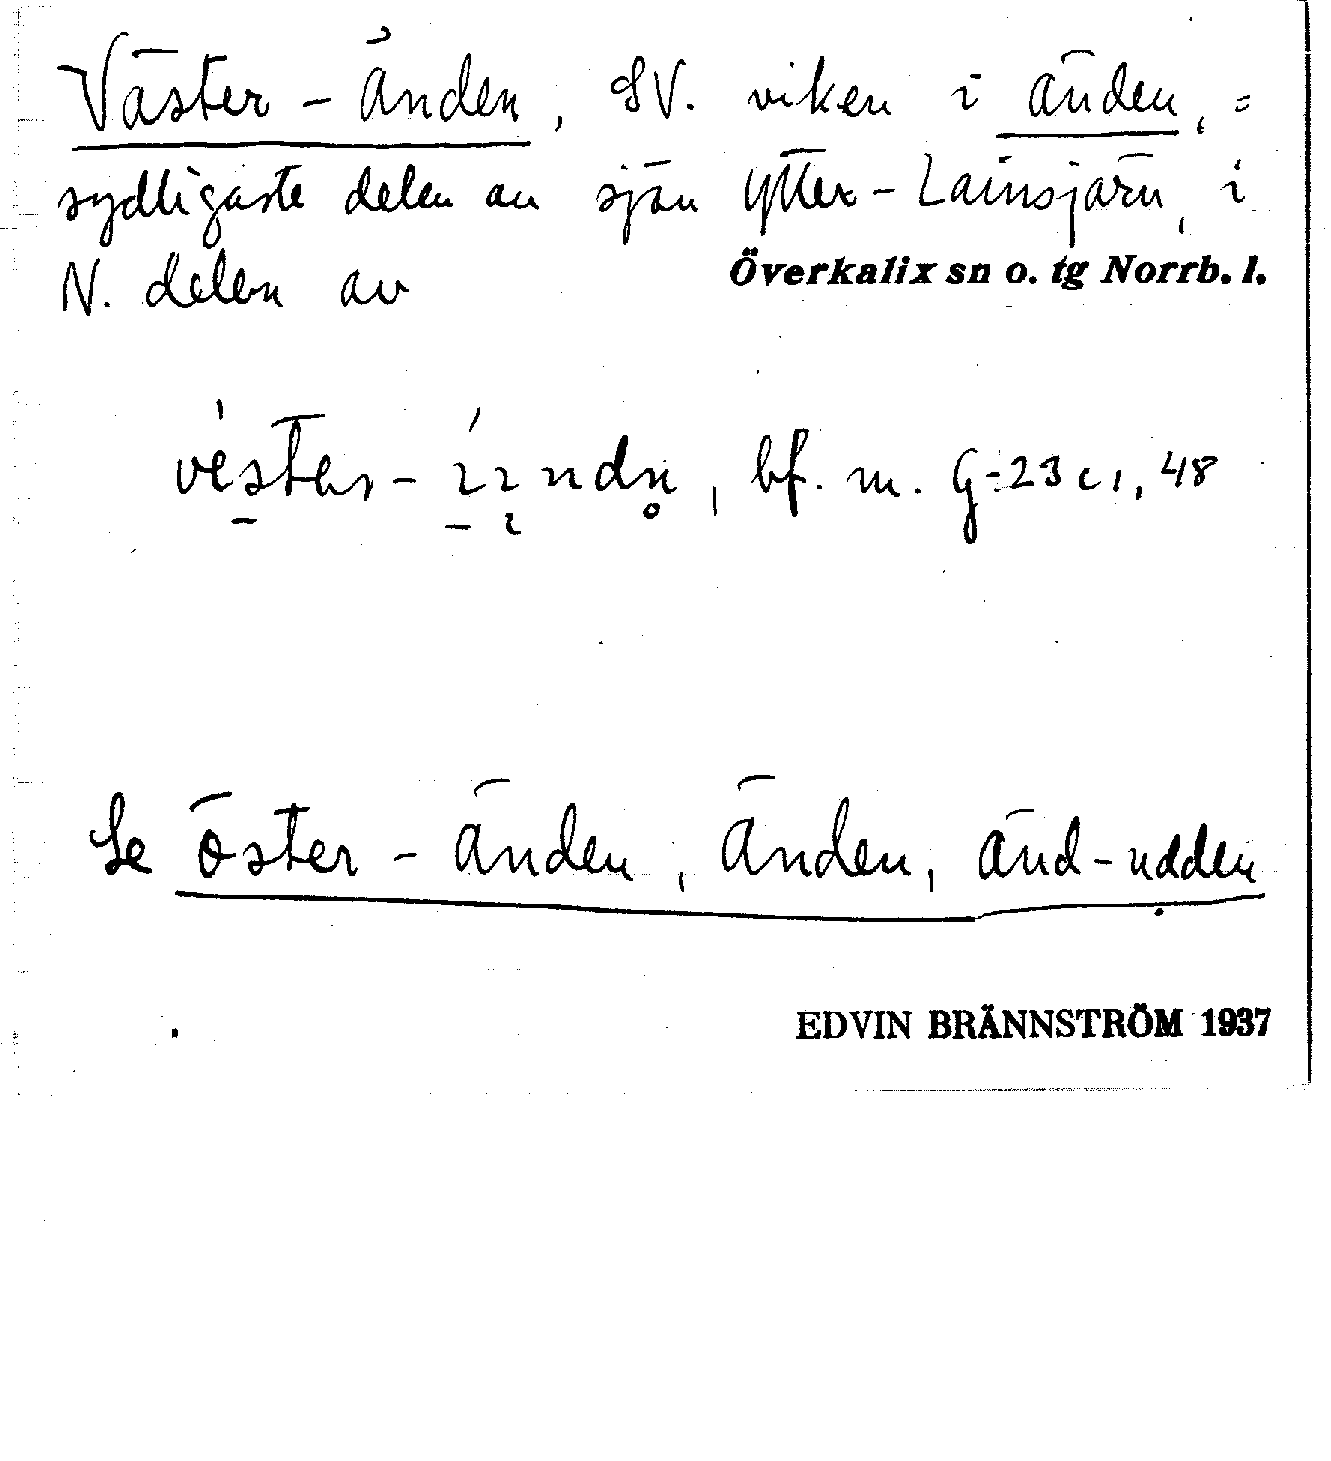 Väster-änden, SV. viken i änden, =
sydligaste delen av sjön Ytter-Lainsjärn, i
N. delen av Överkalix sn o. tg Norrb. l.
bf. m. G:23 c 1, 48
Se Öster-änden, Änden, Änd-udden
EDVIN BRÄNNSTRÖM 1937